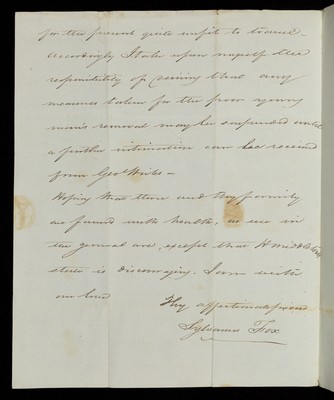 for the present quite unfit to travel -
Accordingly I take upon myself the
responsibility of desiring that any
measures taken for the poor young
man's removal may be suspended until
a further intimation can be received
from Geo.
Hoping that thou and thy family
are favored with health, as we in
the general are, except that
state is discouraging. I am with
our love
Thy affectionate friend
Sylvanus Fox